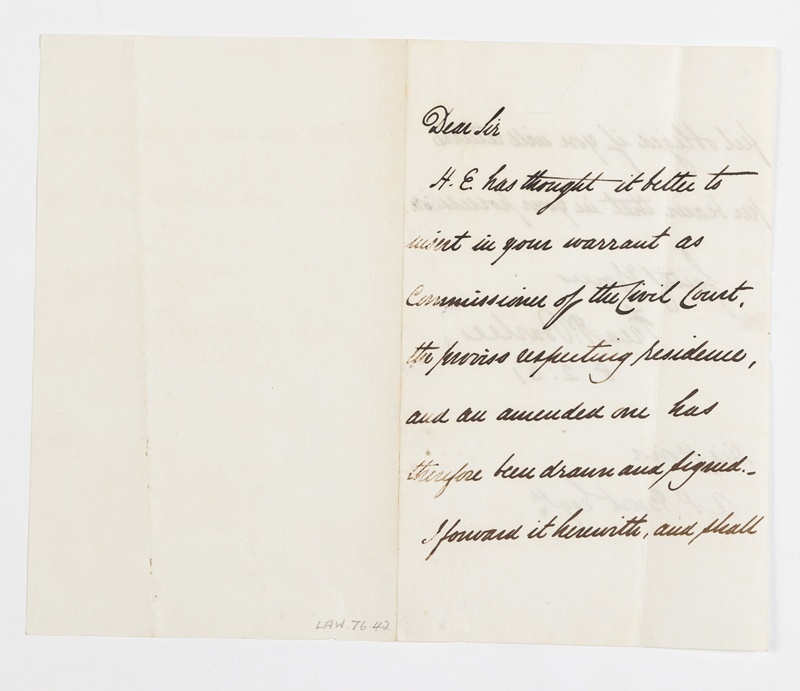 Dear Sir
H. E. has thought it better to
insert in your warrant as
Commissioner of the Civil Court,
the proviso respecting residence,
and an amended one has
therefore been drawn and signed.-
I forward it herewith, and shall
LAW.76.42